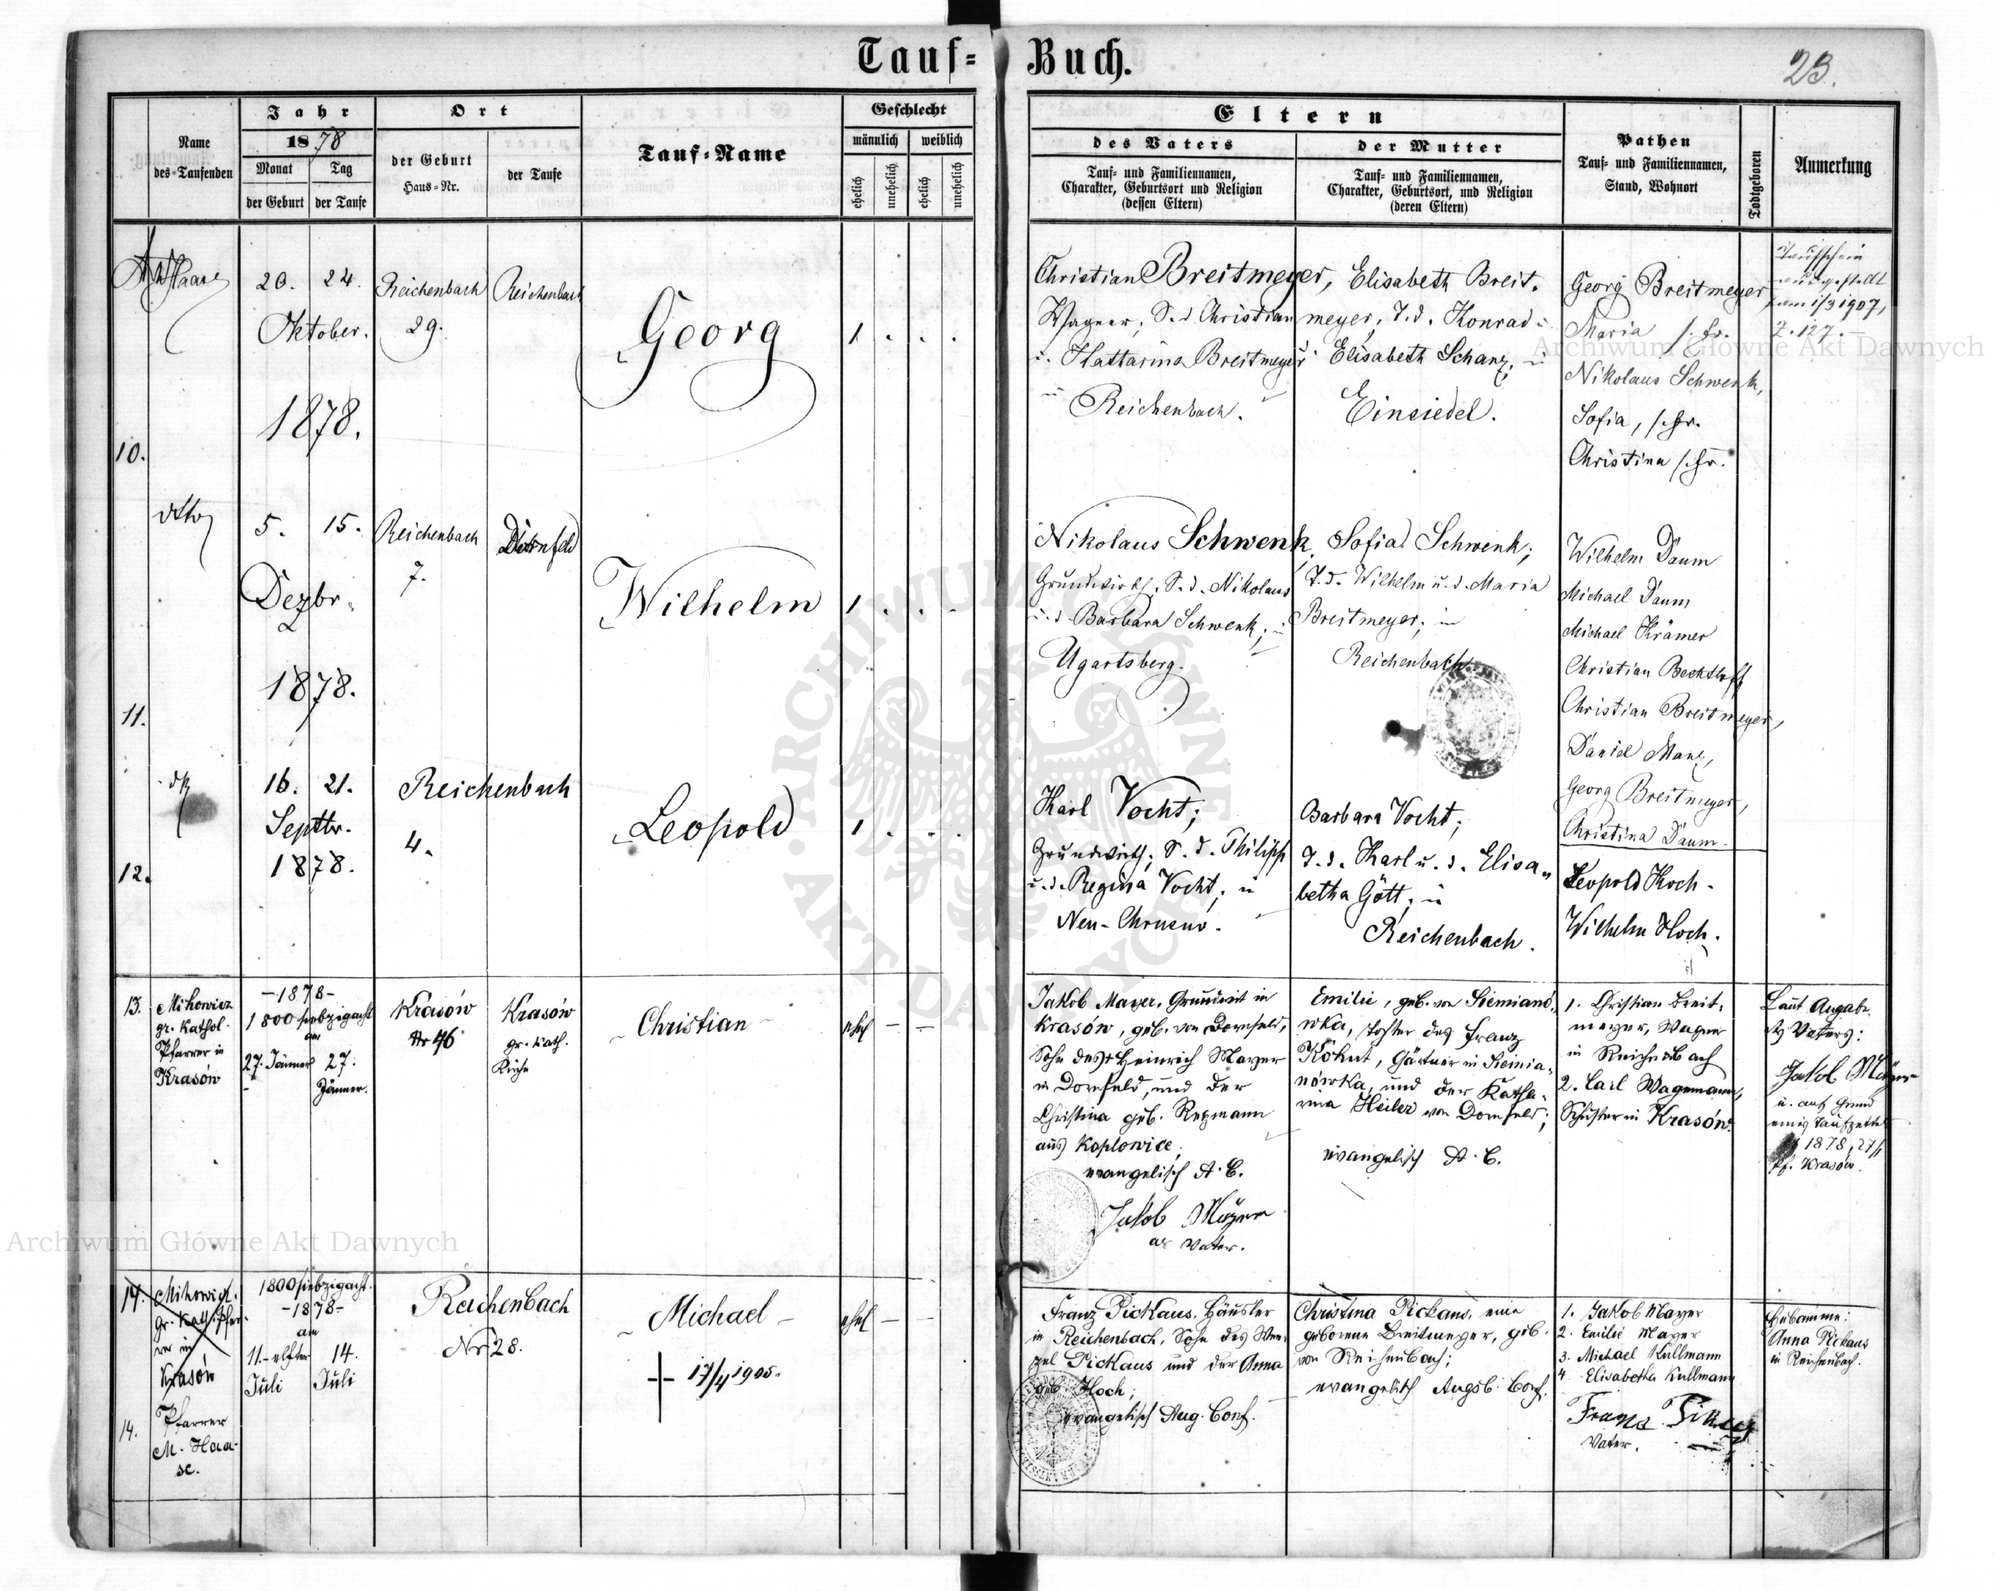 Tauf- Buch.
23.
Name
des Taufenden
Jahr
1878
Monat
Tag
der Geburt
der Taufe
Ort
der Geburt
Haus-Nr.
der Taufe
Tauf-Name
Geschlecht
männlich
weiblich
ehelich
unehelich
ehelich
unehelich
Eltern
des Vaters
Tauf- und Familiennamen,
Charakter, Geburtsort und Religion
(dessen Eltern)
der Mutter
Tauf- und Familiennamen,
Charakter, Geburtsort, und Religion
(deren Eltern)
Pathen
Tauf- und Familiennamen,
Stand, Wohnort
Todtgeboren
Anmerkung
10.
20. 24.
Oktober.
1878.
Reichenbach
29.
Reichenbach
Georg
1 . . .
Christian Breitmeyer,
Wagner, S. d. Christian
u. Kattarina Breitmeyer
Reichenbach.
Elisabeth Breit-
meyer, T. d. Konrad u.
Elisabeth Schanz, in
Einsiedel.
Georg Breitmeyer,
Maria /: Fr.
Nikolaus Schwenk,
Sofia, /: Fr.
Christina /: Fr.
Taufschein
ausgestellt
am 1/3 1907,
Z. 127.
11.
dtto
5. 15.
Dezbr.
1878.
Reichenbach
7.
Dornfeld
Wilhelm
1 . . .
Nikolaus Schwenk,
Grundwirth, S. d. Nikolaus
u. d. Barbara Schwenk, in
Ugartsberg.
Sofia Schwenk;
T. d. Wilhelm u. d. Maria
Breitmeyer, in
Reichenbach
Wilhelm Daum
Michael Daum
Michael Krämer
Christian Bechtloff
Christian Breitmeyer,
Daniel Manz,
Georg Breitmeyer,
Christina Daum.
12.
16. 21.
Septbr.
1878.
Reichenbach
4.
Leopold
1 . . .
Karl Vocht;
Grundwirth, S. d. Philipp
u. d. Regina Vocht, in
Neu-Chrusno.
Barbara Vocht;
T. d. Karl u. d. Elisa-
betha Gött, in
Reichenbach.
Leopold Koch.
Wilhelm Koch.
13.
Mihowicz
gr. Kathol.
Pfarrer in
Krasów
-1878-
1800 siebzigacht
am
27. Jänner 27.
Jänner.
Krasów
Nr 46
Krasów
gr. kath.
Kirche
Christian
ehel - -
Jakob Mayer, Grundwirt in
Krasów, geb. von Dornfeld,
Sohn des + Heinrich Mayer
in Dornfeld, und der
Christina geb. Repmann
aus Koplowice,
evangelisch A. C.
Jakob Mayer
als Vater.
Emilie, geb. von Siemianó-
wka, Tochter des Franz
Köhut, Gärtner in Siemia-
nówka, und der Katha-
rina Heiler von Dornfeld;
evangelisch A. C.
1. Christian Breit-
meyer, Wagner
in Reichenbach
2. Carl Wagemann,
Schuster in Krasów.
Laut Angabe
des Vaters:
Jakob Mayer
u. auf Grund
eines Taufzettel
1878, 27/1
Pf. Krasów.
14.
gr. Kath. Pfar-
rer in
Krasów
14.
Pfarrer
M. Haa-
se.
1800 siebzigacht
-1878-
am
11. - elfter 14.
Juli Juli
Reichenbach
Nr 28.
Michael
+ 17/4 1905.
ehel - -
Franz Pickaus, Häusler
in Reichenbach, Sohn des Wen-
zel Pickaus und der Anna
geb. Koch;
evangelisch Aug. Conf.
Christina Pickaus, eine
geborene Breitmeyer, geb.
von Reichenbach;
evangelisch Augsb. Conf.
1. Jakob Mayer
2. Emilie Mayer
3. Michael Kullmann
4. Elisabetha Kullmann
Vater.
Hebamme:
Anna Pickaus
in Reichenbach.
Archiwum Główne Akt Dawnych
Archiwum Główne Akt Dawnych
ARCHIWUM GŁÓWNE AKT DAWNYCH